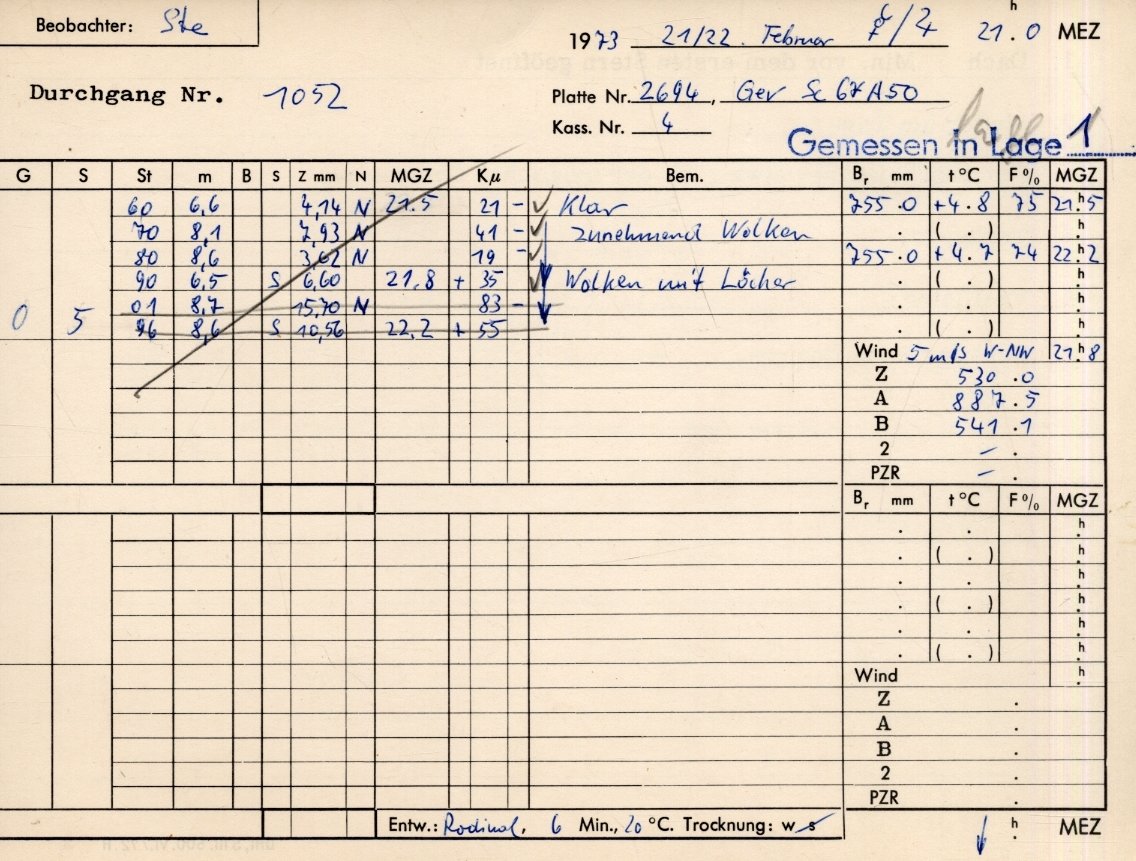 Beobachter: Ste
1973 21/22. Februar 21.0 h MEZ
Durchgang Nr. 1052
Platte Nr. 2694, Gev Sc 67A50
Kass. Nr. 4
Gemessen in Lage 1
G S St m B S Z mm N MGZ Kμ Bem. Br mm t °C F % MGZ
60 6,6 4,14 N 21.5 21 - Klar 755.0 +4.8 75 21h5
70 8,1 7,93 N 41 - zunehmend Wolken . ( . ) h
80 8,6 3,62 N 19 - 755.0 +4.7 74 22h2
90 6,5 S 6,60 21.8 + 35 Wolken mit Löcher . ( . ) h
0 5 01 8,7 15,70 N 83 - . . h
96 8,6 S 10,56 22,2 + 55 . ( . ) h
Wind 5 m/s W-NW 21h8
Z 530.0
A 887.5
B 541.1
2 - .
PZR - .
Br mm t °C F % MGZ
. . h
. ( . ) h
. . h
. ( . ) h
. . h
. ( . ) h
Wind h
Z .
A .
B .
2 .
PZR .
Entw.: Rodinal, 6 Min., 20 °C. Trocknung: w s h MEZ